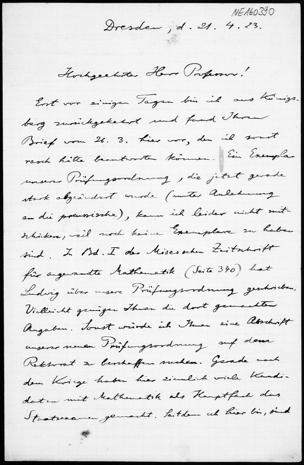 NE160390
Dresden, d. 21. 4. 23.
Hochgeehrter Herr Professor!
Erst vor einigen Tagen bin ich aus Königs-
berg zurückgekehrt und fand Ihren
Brief vom 26. 3. hier vor, den ich sonst
rasch hätte beantworten können. Ein Exemplar
unserer Prüfungsordnung, die jetzt gerade
stark abgeändert wurde (unter Anlehnung
an die preussische), kann ich leider nicht mit-
schicken, weil noch keine Exemplare zu haben
sind. In Bd. I der Misesschen Zeitschrift
für angewandte Mathematik (Seite 390) hat
Ludwig über unsere Prüfungsordnung geschrieben.
Vielleicht genügen Ihnen die dort gemachten
Angaben. Sonst würde ich Ihnen eine Abschrift
unserer neuen Prüfungsordnung auf dem
Rektorat zu beschaffen suchen. Gerade nach
dem Kriege haben hier ziemlich viele Kandi-
daten mit Mathematik als Hauptfach das
Staatsexamen gemacht. Seitdem ich hier bin, sind